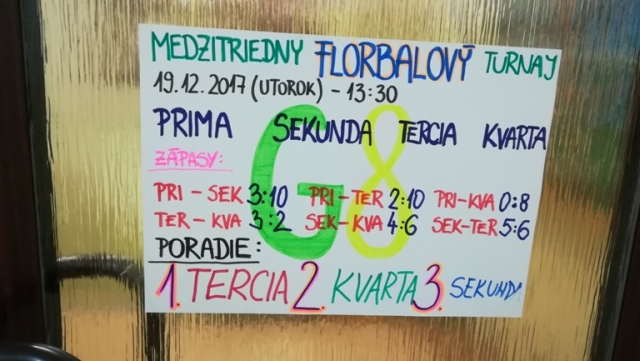 MEDZITRIEDNY FLORBALOVÝ TURNAJ
19.12.2017 (UTOROK) - 13:30
PRIMA SEKUNDA TERCIA KVARTA
G8
ZÁPASY:
PRI - SEK 3:10 PRI - TER 2:10 PRI - KVA 0:8
TER - KVA 3:2 SEK - KVA 4:6 SEK - TER 5:6
PORADIE:
1. TERCIA 2. KVARTA 3. SEKUNDA